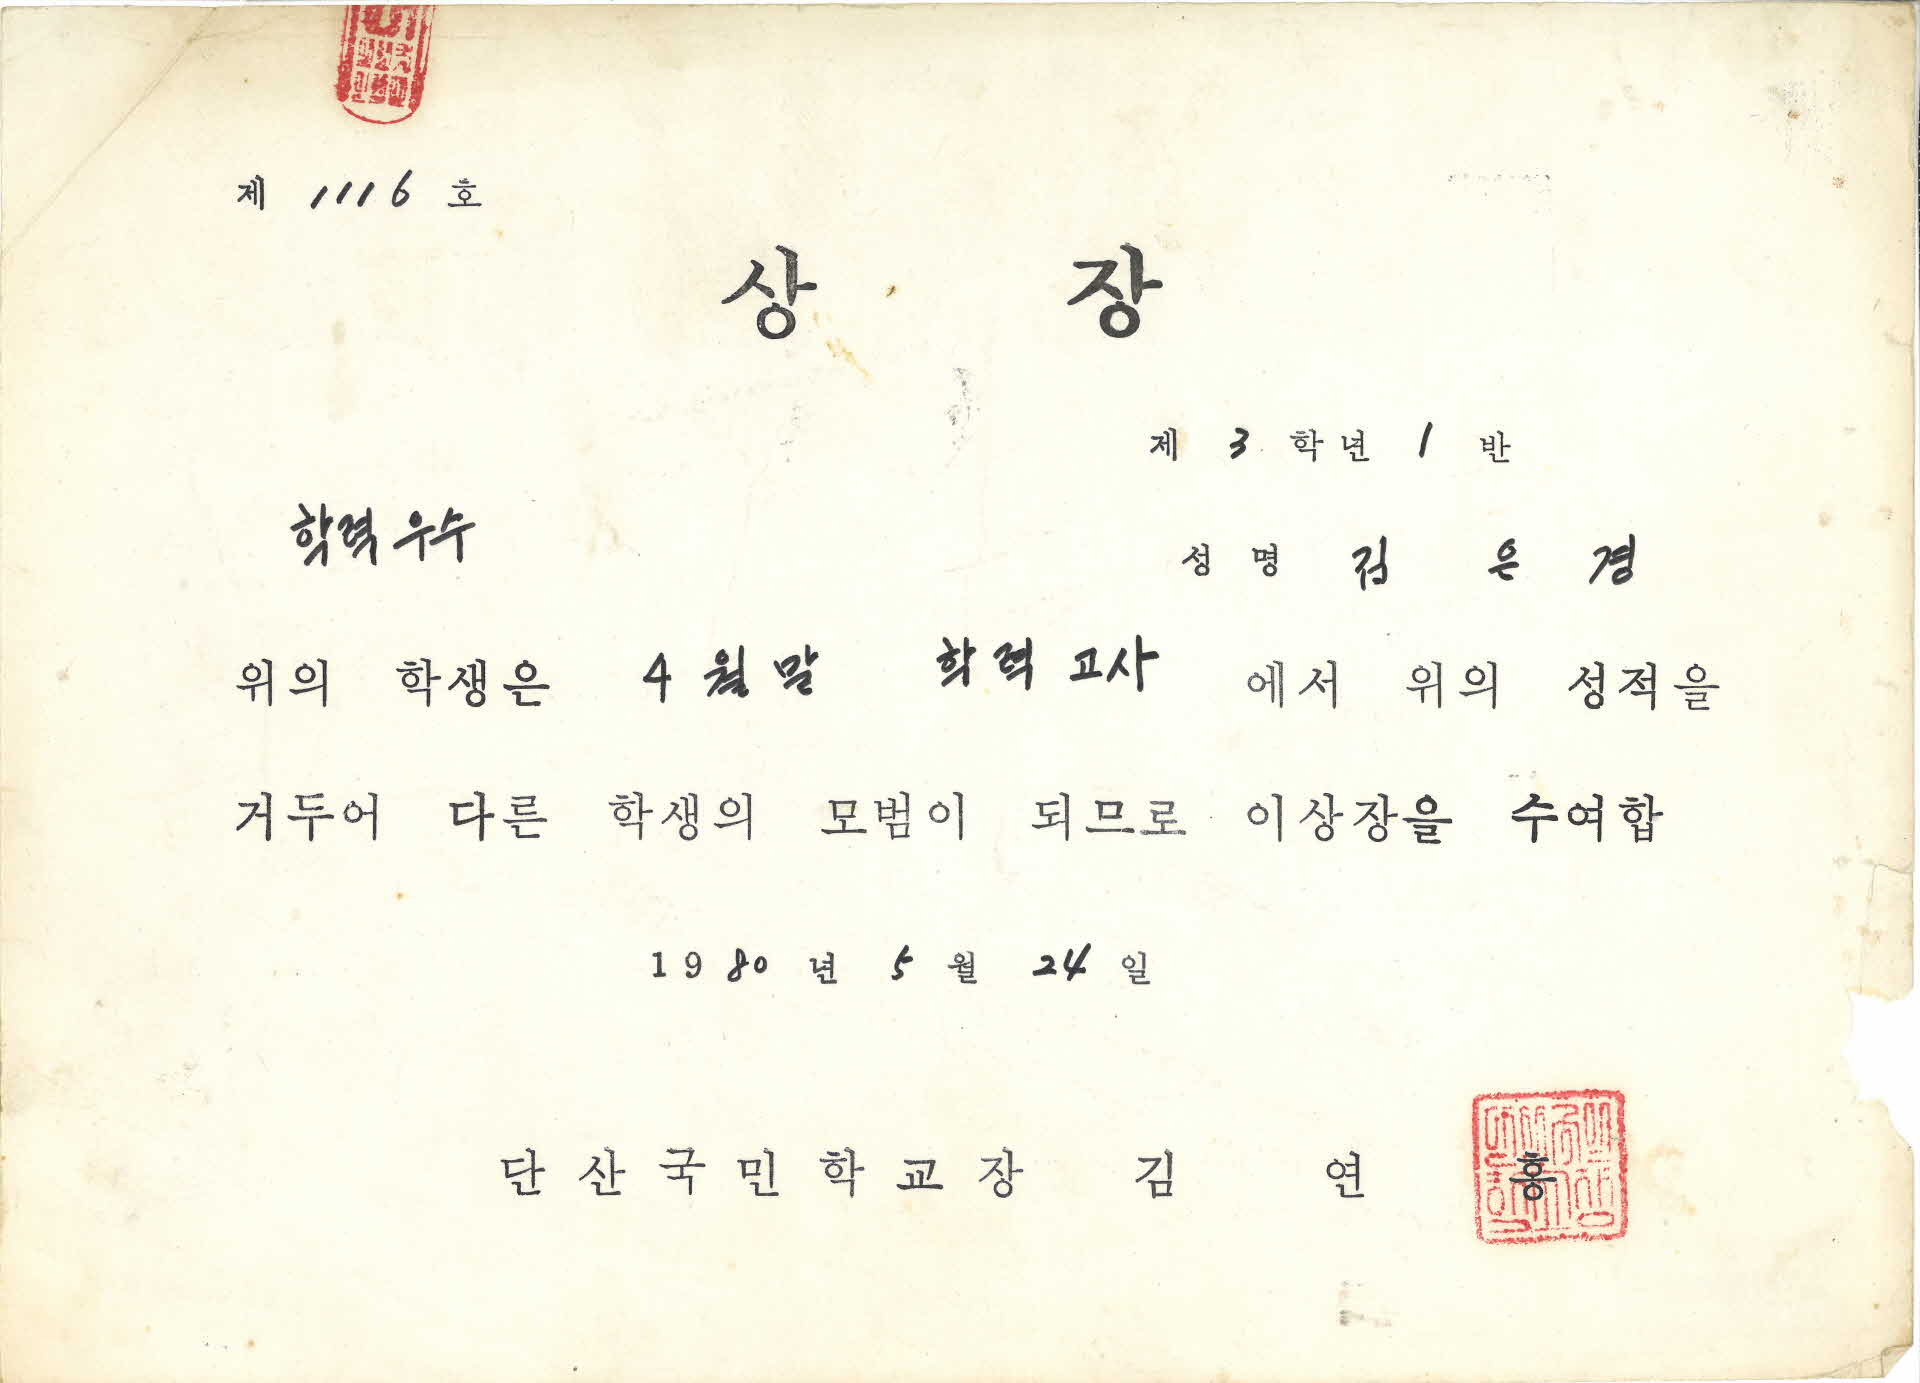 제 1116 호
상 장
제 3 학년 1 반
학력우수
성명 김 은 경
위의 학생은 4월말 학력고사 에서 위의 성적을
거두어 다른 학생의 모범이 되므로 이상장을 수여합
1980 년 5 월 24 일
단산국민학교장 김 연 홍